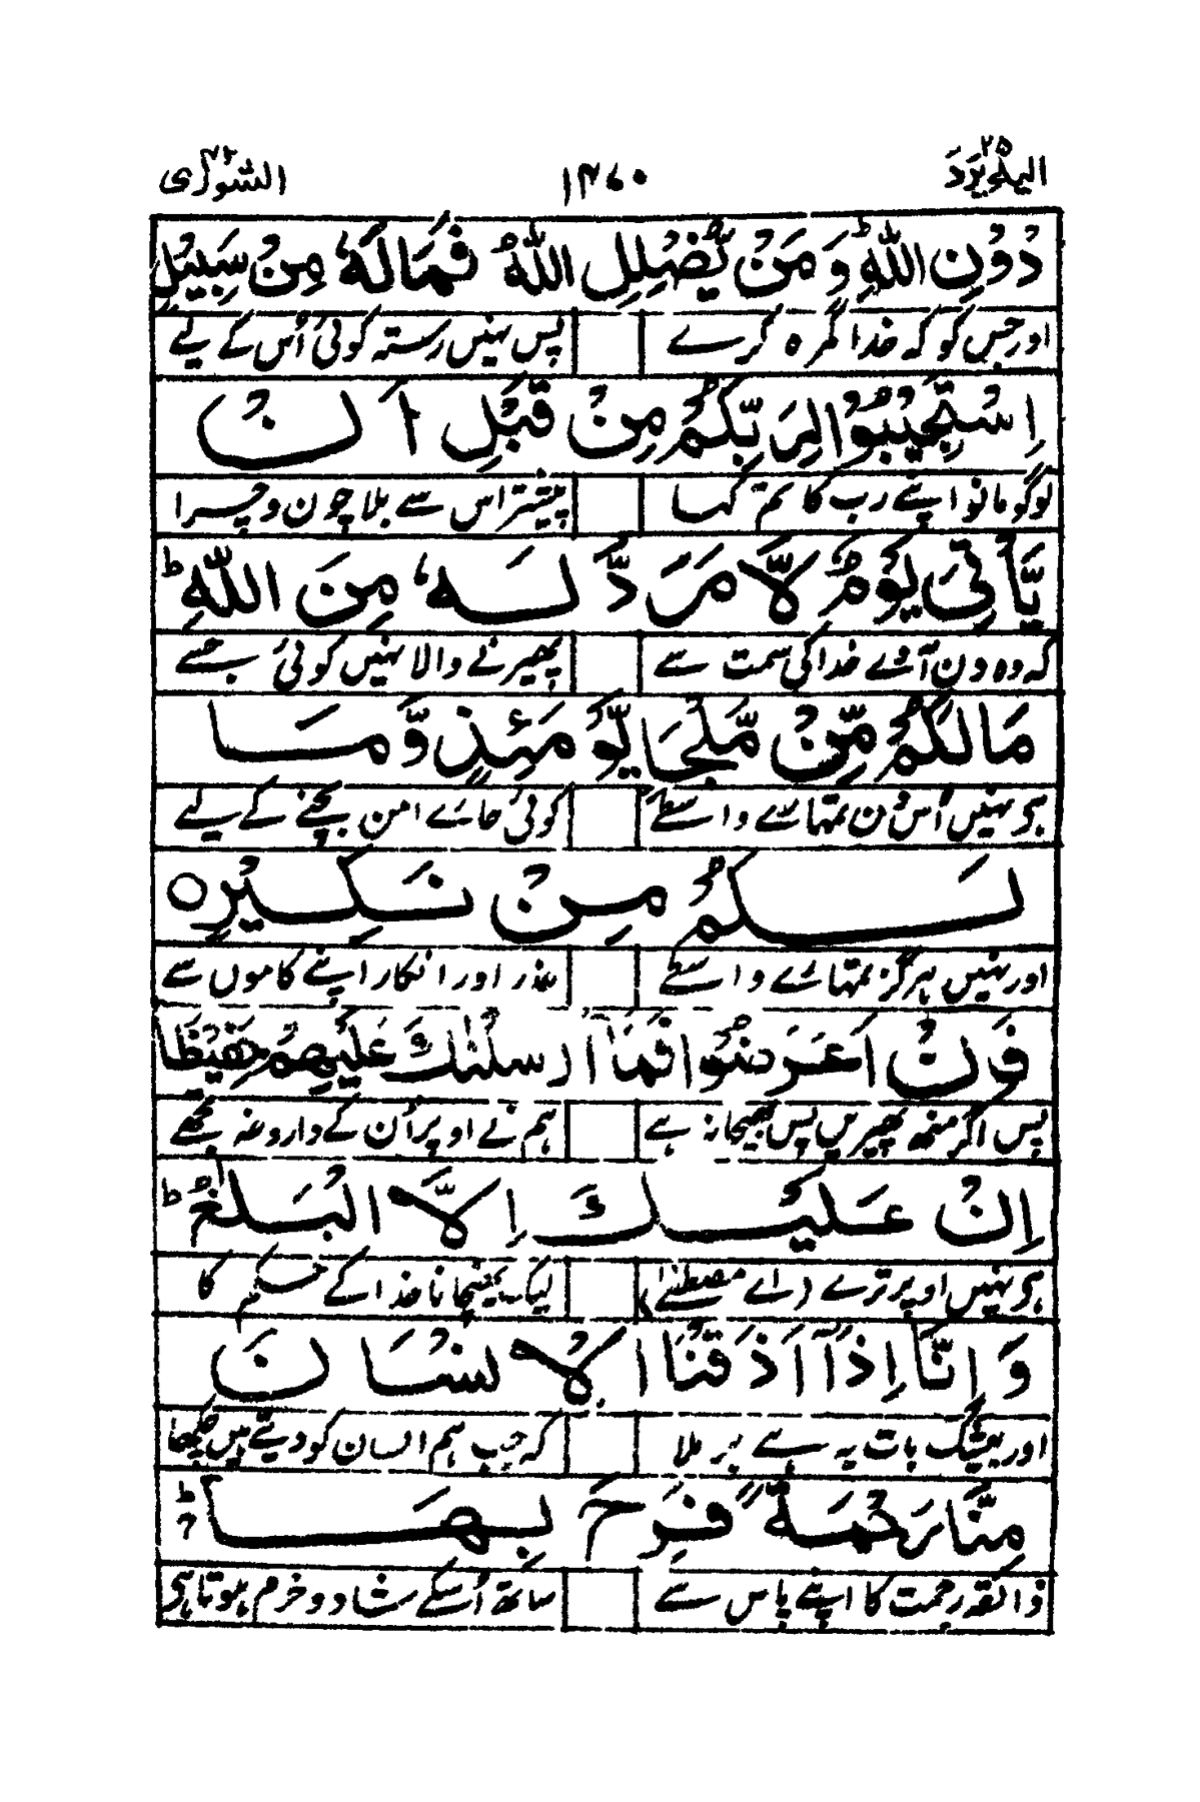 الیہ یرد ۲۵ ۱۴۶۰ الشوریٰ ۴۲
دُوْنِ اللّٰهِ ؕ وَ مَنْ یُّضْلِلِ اللّٰهُ فَمَا لَهٗ مِنْ سَبِیْلٍ
اور جس کو کہ خدا گمرہ کرے پس نہیں رستہ کوئی اُس کے لیے
اِسْتَجِیْبُوْا لِرَبِّكُمْ مِنْ قَبْلِ اَنْ
لوگو مانو اپنے رب کا تم کہا پیشتر اس سے بلا چون و چرا
یَّاْتِیَ یَوْمٌ لَّا مَرَدَّ لَهٗ مِنَ اللّٰهِ ؕ
کہ وہ دن آوے خدا کی سمت سے پھیرنے والا نہیں کوئی جسے
مَالَكُمْ مِّنْ مَّلْجَاٍ یَّوْمَئِذٍ وَّ مَا
ہی نہیں اُس دن تمہارے واسطے کوئی جائے امن بچنے کے لیے
لَكُمْ مِنْ نَكِیْرٍ ○
اور نہیں ہرگز تمہارے واسطے عذر اور انکار اپنے کاموں سے
فَاِنْ اَعْرَضُوْا فَمَآ اَرْسَلْنٰكَ عَلَیْهِمْ حَفِیْظًا
پس اگر منھ پھیریں پس بھیجا نہ ہے ہم نے اوپر اُن کے داروغہ تجھے
اِنْ عَلَیْكَ اِلَّا الْبَلٰغُ ؕ
ہی نہیں اوپر ترے (اے مصطفےٰ) لیک پہنچانا خدا کے حکم کا
وَ اِنَّآ اِذَآ اَذَقْنَا الْاِنْسَانَ
اور بیشک بات یہ ہے بر ملا کہ جب ہم انسان کو دیتے ہیں چکھا
مِنَّا رَحْمَةً فَرِحَ بِهَا ؕ
ذائقہ رحمت کا اپنے پاس سے ساتھ اُسکے شاد و خرم ہوتا ہی